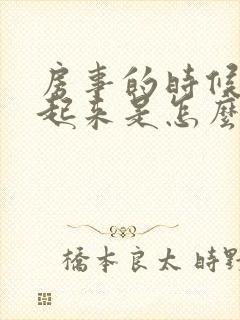 房事的時候
起來是怎麼
橋本良太 時野